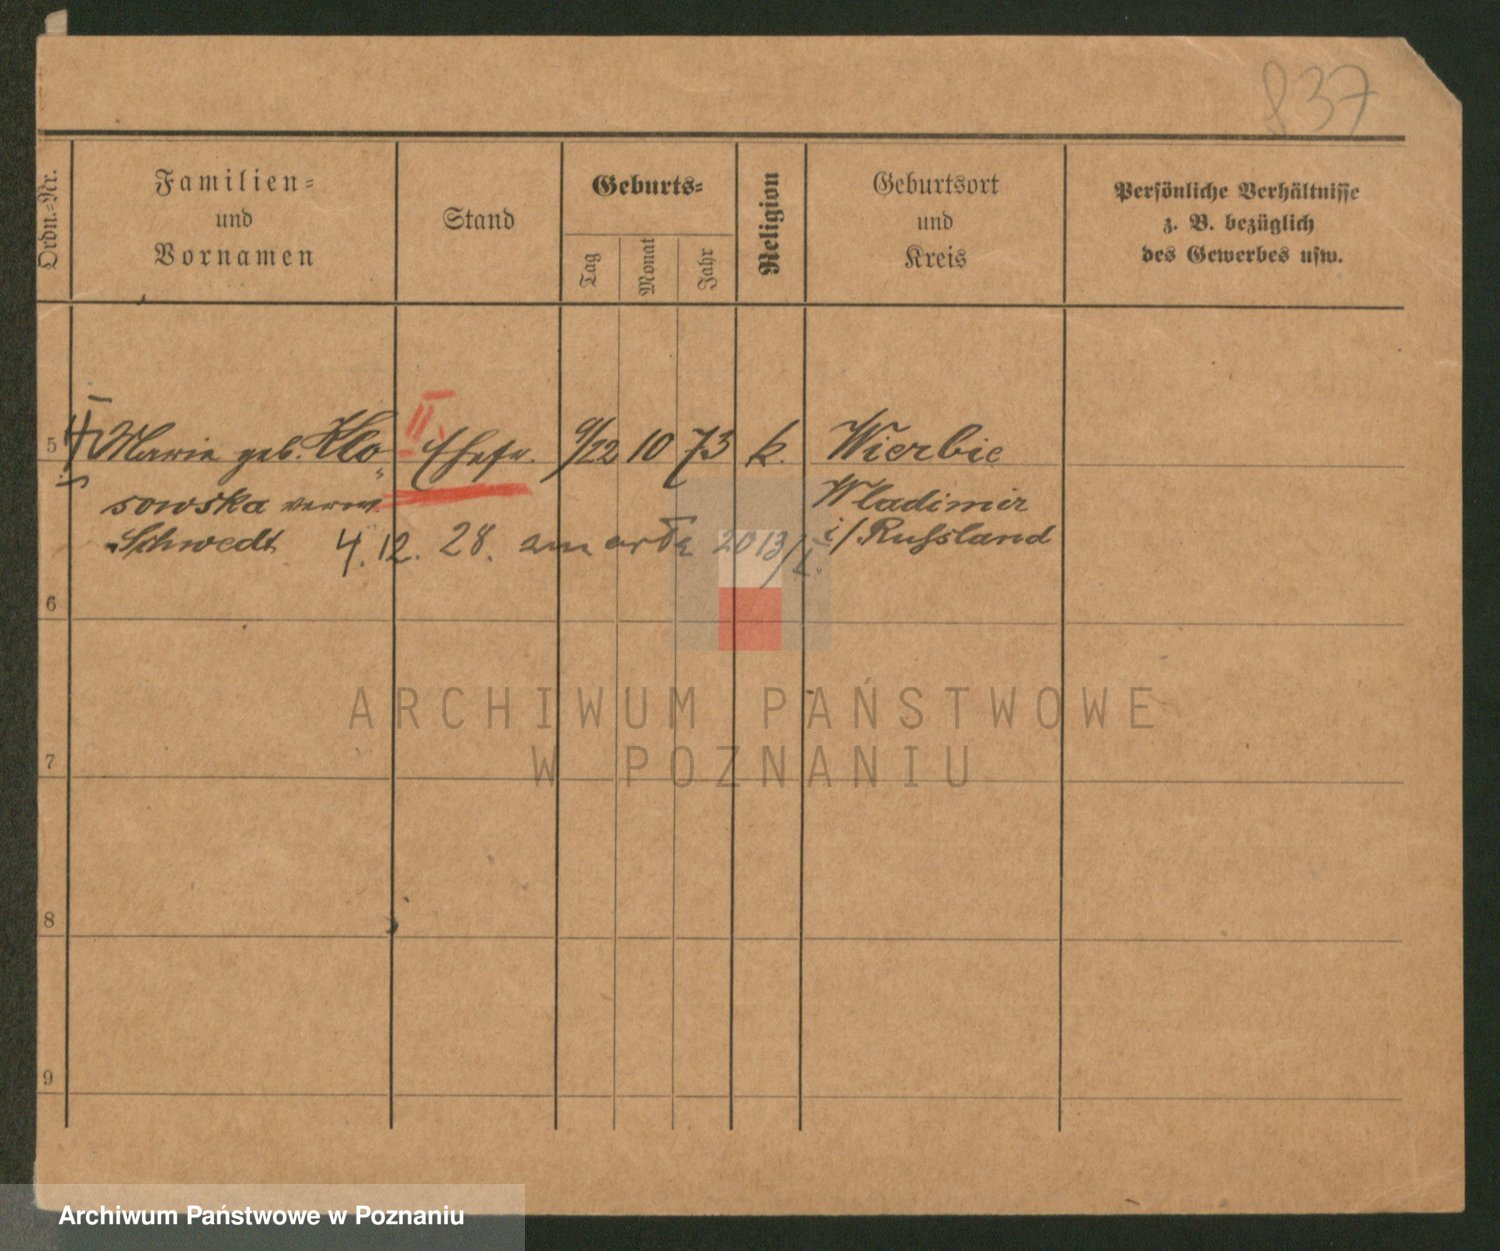 837
Ordn.-Nr.
Familien-
und
Vornamen
Stand
Geburts-
Tag
Monat
Jahr
Religion
Geburtsort
und
Kreis
Persönliche Verhältnisse
z. B. bezüglich
des Gewerbes usw.
5
Marie geb. Klo
II.
Ehefr.
9/22 10 73 k.
Wierbie
sowska verw
Wladimir
Schwedt
i/Russland
4.12. 28. 2013/
6
ARCHIWUM PAŃSTWOWE
W POZNANIU
7
8
9
Archiwum Państwowe w Poznaniu